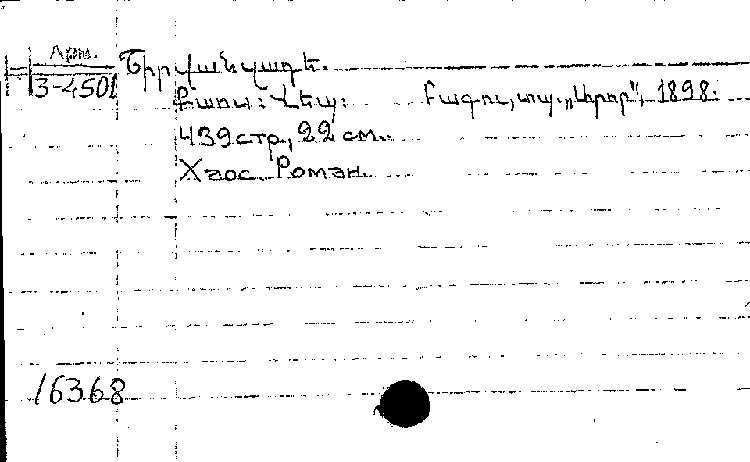 Арм.
3-4501
Շիրվանզադե.
Քաոս: Վեպ: Բագու, տպ. „Արոր", 1898.
439 стр., 22 см.
Хаос. Роман.
16368